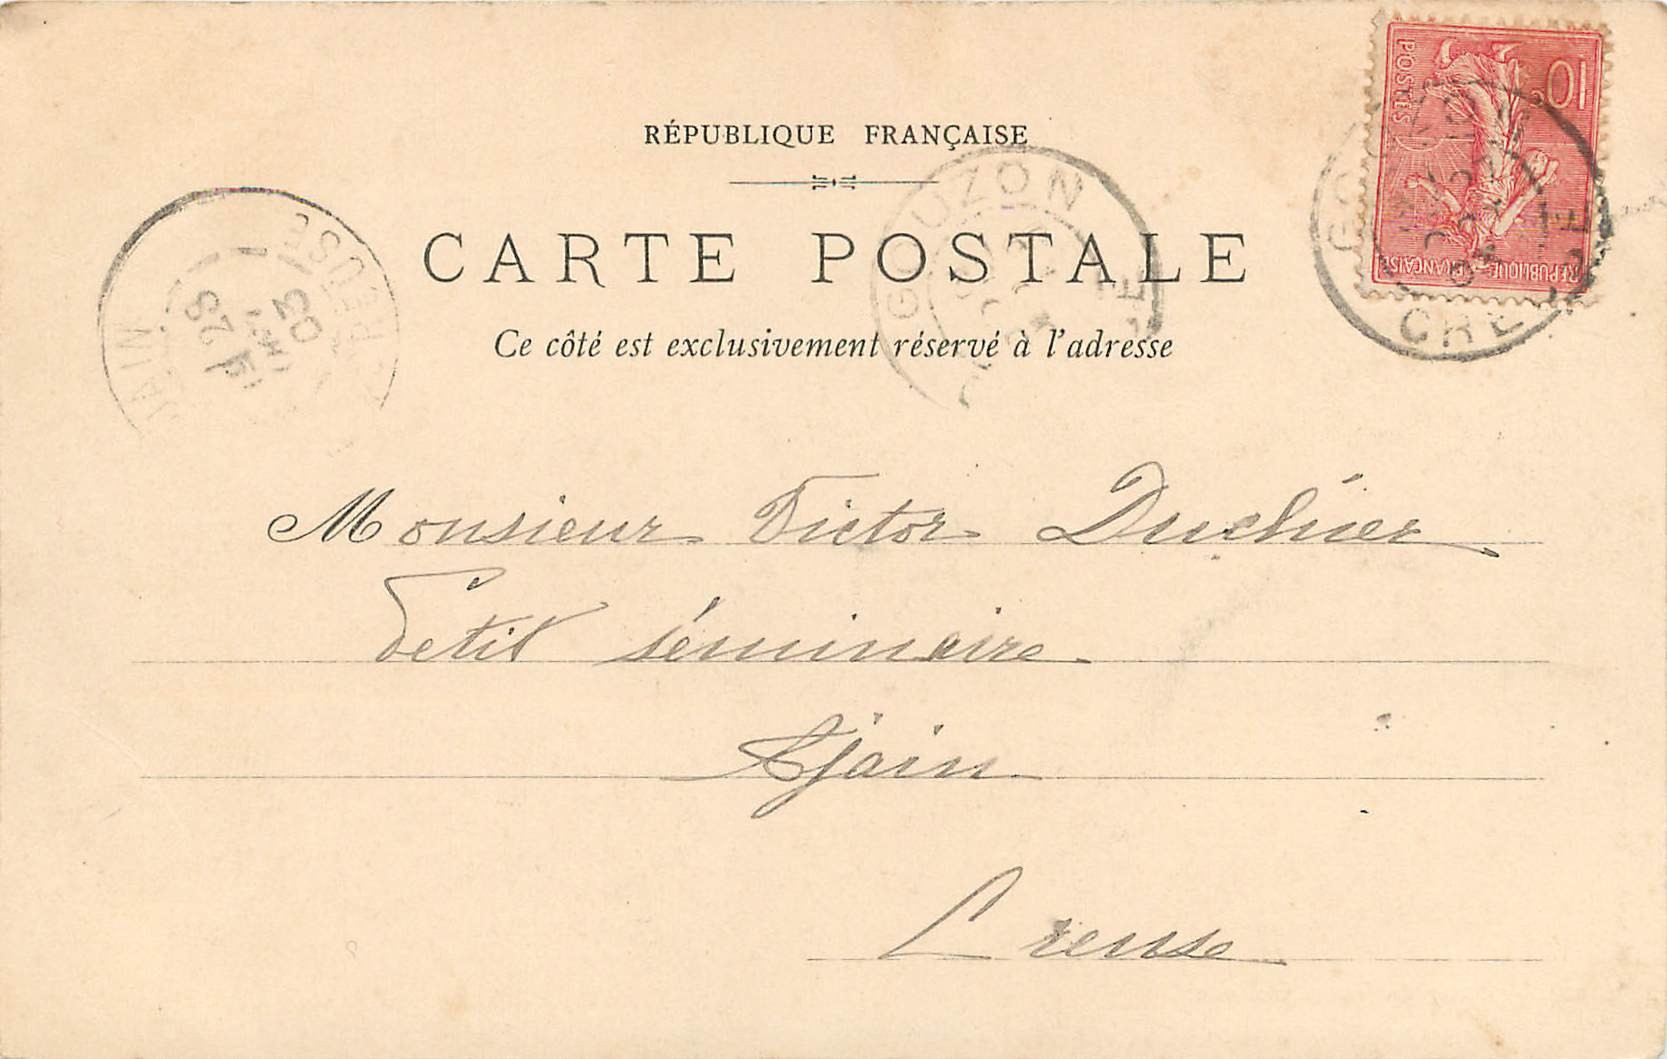 RÉPUBLIQUE FRANÇAISE
CARTE POSTALE
Ce côté est exclusivement réservé à l'adresse
10c
POSTES
REPUBLIQUE FRANÇAISE
GOUZON
CRE
GOUZON
SE
AJAIN
CREUSE
28
03
Monsieur Victor Duchier
Petit séminaire
Ajain
Creuse